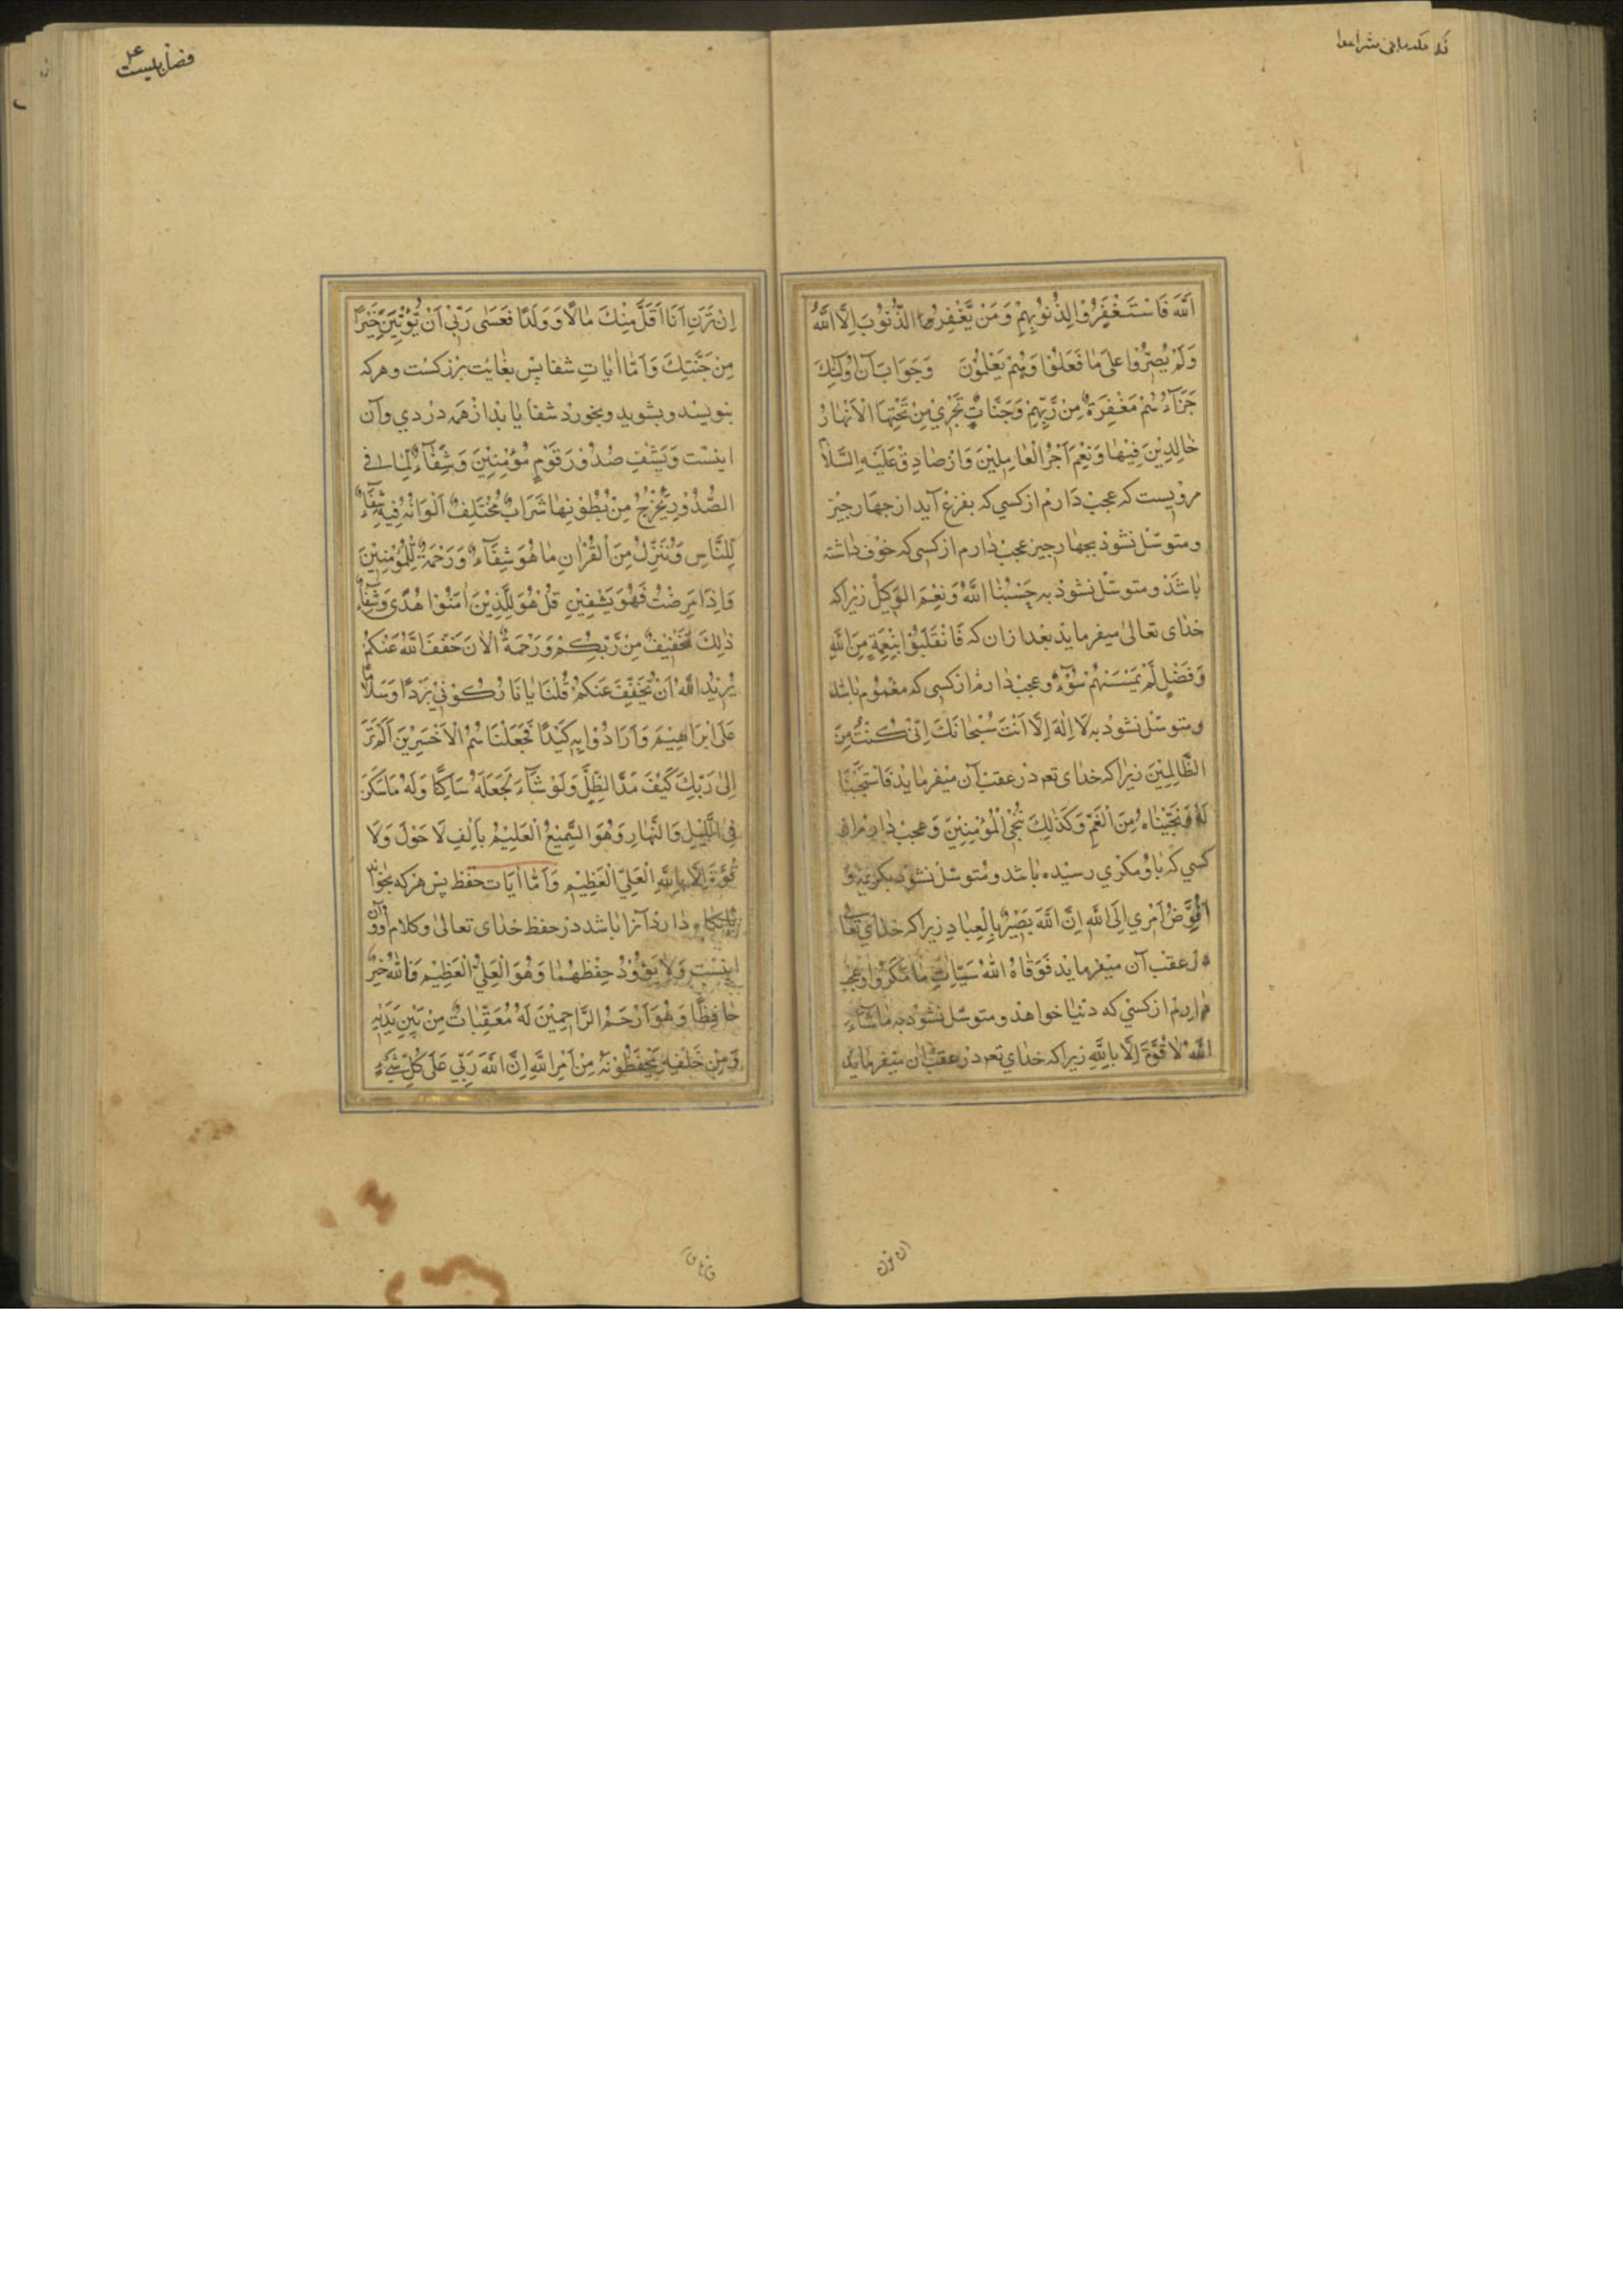 اللَّهَ فَاسْتَغْفَرُوْا لِذُنُوْبِهِمْ وَمَنْ يَّغْفِرُ الذُّنُوْبَ اِلَّا اللَّهُ
وَلَمْ يُصِرُّوا عَلىٰ مَا فَعَلُوْا وَهُمْ يَعْلَمُوْنَ وَجَوَابَ آن اُولٰئِكَ
جَزَآءُهُمْ مَغْفِرَةٌ مِنْ رَّبِّهِمْ وَجَنَّاتٌ تَجْرِيْ مِنْ تَحْتِهَا الْاَنْهَارُ
خَالِدِيْنَ فِيْهَا وَنِعْمَ اَجْرُ الْعَامِلِيْنَ وَاَزْ صَادِقْ عَلَيْهِ السَّلاٰ
مرويست كه عجب دارم از كسي كه بفزع آيد از جهار جيز
ومتوسّل نشود بجهار جيز عجب دارم از كسي كه خوف داشته
باشد ومتوسّل نشود به حَسْبُنَا اللَّهُ وَنِعْمَ الْوَكِيْلُ زيراكه
خداى تعالىٰ ميفرمايد بعد ازان كه فَانْقَلَبُوْا بِنِعْمَةٍ مِنَ اللَّهِ
وَفَضْلٍ لَّمْ يَمْسَسْهُمْ سُوْٓءٌ وعجب دارم از كسي كه مغموم باشد
ومتوسّل نشود به لَا اِلٰهَ اِلَّا اَنْتَ سُبْحَانَكَ اِنِّيْ كُنْتُ مِنَ
الظَّالِمِيْنَ زيراكه خداى تعه در عقب آن ميفرمايد فَاسْتَجَبْنَا
لَهُ وَنَجَّيْنَاهُ مِنَ الْغَمِّ وَكَذٰلِكَ نُنْجِي الْمُؤْمِنِيْنَ وَعجب دارم از
كسي كه باو مكري رسيده باشد ومتوسّل نشود بكريمه وَ
اُفَوِّضُ اَمْرِي اِلَى اللَّهِ اِنَّ اللَّهَ بَصِيْرٌ بِالْعِبَادِ زيراكه خداي تعالى
در عقب آن ميفرمايد فَوَقَاهُ اللَّهُ سَيِّاٰتِ مَا مَكَرُوْا وعجب
دارم از كسي كه دنيا خواهد ومتوسّل نشود به مَا شَآءَ
اللَّهُ لَا قُوَّةَ اِلَّا بِاللَّهِ زيراكه خداي تعه در عقب آن ميفرمايد
اِنْ تَرَنِ اَنَا اَقَلَّ مِنْكَ مَالًا وَّوَلَدًا فَعَسٰى رَبِّيْ اَنْ يُّؤْتِيَنِ خَيْرًا
مِنْ جَنَّتِكَ وَاَمَّا اٰيَاتِ شفا پس بغايت بزركست وهركه
بنويسد وبشويد وبخورد شفا يابد از همه دردي وآن
اينست وَيَشْفِ صُدُوْرَ قَوْمٍ مُؤْمِنِيْنَ وَشِفَآءٌ لِمَا فِي
الصُّدُوْرِ يَخْرُجُ مِنْ بُطُوْنِهَا شَرَابٌ مُخْتَلِفٌ اَلْوَانُهُ فِيْهِ شِفَآءٌ
لِلنَّاسِ وَنُنَزِّلُ مِنَ الْقُرْاٰنِ مَا هُوَ شِفَآءٌ وَرَحْمَةٌ لِلْمُؤْمِنِيْنَ
وَاِذَا مَرِضْتُ فَهُوَ يَشْفِيْنِ قُلْ هُوَ لِلَّذِيْنَ اٰمَنُوْا هُدًى وَشِفَآءٌ
ذٰلِكَ تَخْفِيْفٌ مِنْ رَّبِّكُمْ وَرَحْمَةٌ اَلْاٰنَ خَفَّفَ اللَّهُ عَنْكُمْ
يُرِيْدُ اللَّهُ اَنْ يُخَفِّفَ عَنْكُمْ قُلْنَا يَا نَارُ كُوْنِيْ بَرْدًا وَسَلَامًا
عَلىٰ اِبْرَاهِيْمَ وَاَرَادُوْا بِهِ كَيْدًا فَجَعَلْنَاهُمُ الْاَخْسَرِيْنَ اَلَمْ تَرَ
اِلىٰ رَبِّكَ كَيْفَ مَدَّ الظِّلَّ وَلَوْ شَآءَ لَجَعَلَهُ سَاكِنًا وَلَهُ مَا سَكَنَ
فِي اللَّيْلِ وَالنَّهَارِ وَهُوَ السَّمِيْعُ الْعَلِيْمُ بِاَلِفِ لَا حَوْلَ وَلَا
قُوَّةَ اِلَّا بِاللَّهِ الْعَلِيِّ الْعَظِيْمِ وَاَمَّا اٰيَات حفظ پس هركه بخواند
دارد آنرا باشد در حفظ خداى تعالىٰ وكلام او وآن
اينست وَلَا يَؤُوْدُهُ حِفْظُهُمَا وَهُوَ الْعَلِيُّ الْعَظِيْمُ فَاللَّهُ خَيْرٌ
حَافِظًا وَهُوَ اَرْحَمُ الرَّاحِمِيْنَ لَهُ مُعَقِّبَاتٌ مِنْ بَيْنِ يَدَيْهِ
وَمِنْ خَلْفِهِ يَحْفَظُوْنَهُ مِنْ اَمْرِ اللَّهِ اِنَّ اللَّهَ رَبِّي عَلىٰ كُلِّ شَيْءٍ